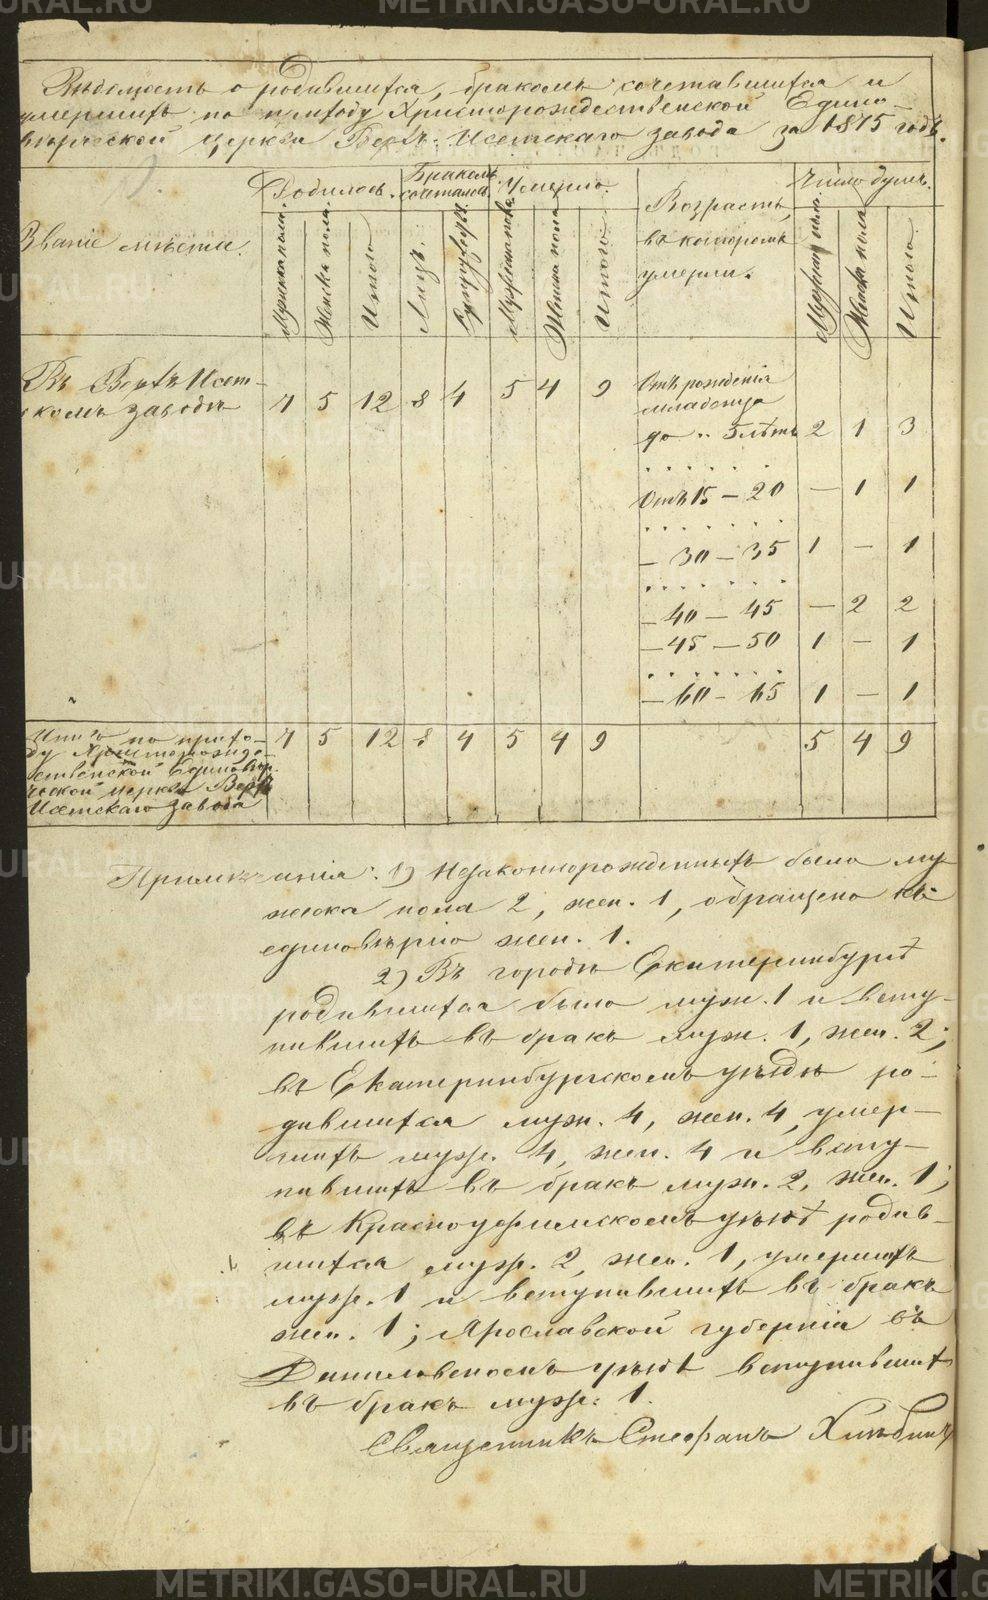 METRIKI.GASO-URAL.RU
Вѣдомость о родившихся, бракомъ сочетавшихся и
умершихъ по приходу Христорождественской Едино-
вѣрческой церкви Верхъ-Исетскаго завода за 1875 годъ.
Званіе мѣста.
Родилось.
Бракомъ сочеталось.
Умерло.
Возрастъ, въ которомъ умерли.
Число душъ.
Мужска пола. Женска пола. Итого Лицъ. Супружествъ. Мужска пола Женска пола Итого Мужска пола Женска пола Итого
Въ Верхъ-Исет-
скомъ заводѣ 7 5 12 8 4 5 4 9
Отъ рожденія
младенца
до 5 лѣтъ 2 1 3
Отъ 15 – 20 – 1 1
– 30 – 35 1 – 1
– 40 – 45 – 2 2
– 45 – 50 1 – 1
– 60 – 65 1 – 1
Итого по прихо- 7 5 12 8 4 5 4 9 5 4 9
ду Христорожде-
ственской Единовѣр-
ческой церкви Верхъ-
Исетскаго завода
Примѣчанія: 1) Незаконнорожденныхъ было му-
жска пола 2, жен. 1, обращено къ
единовѣрію жен. 1.
2) Въ городѣ Екатеринбургѣ
родившихся было муж. 1 и всту-
пившихъ въ бракъ муж. 1, жен. 2;
въ Екатеринбургскомъ уѣздѣ ро-
дившихся муж. 4, жен. 4, умер-
шихъ муж. 4, жен. 4 и всту-
пившихъ въ бракъ муж. 2, жен. 1;
въ Красноуфимскомъ уѣздѣ родив-
шихся муж. 2, жен. 1, умершихъ
муж. 1 и вступившихъ въ бракъ
жен. 1; Ярославской губерніи въ
Даниловскомъ уѣздѣ вступившихъ
въ бракъ муж. 1.
Священникъ Стефанъ Хлѣбинъ
METRIKI.GASO-URAL.RU